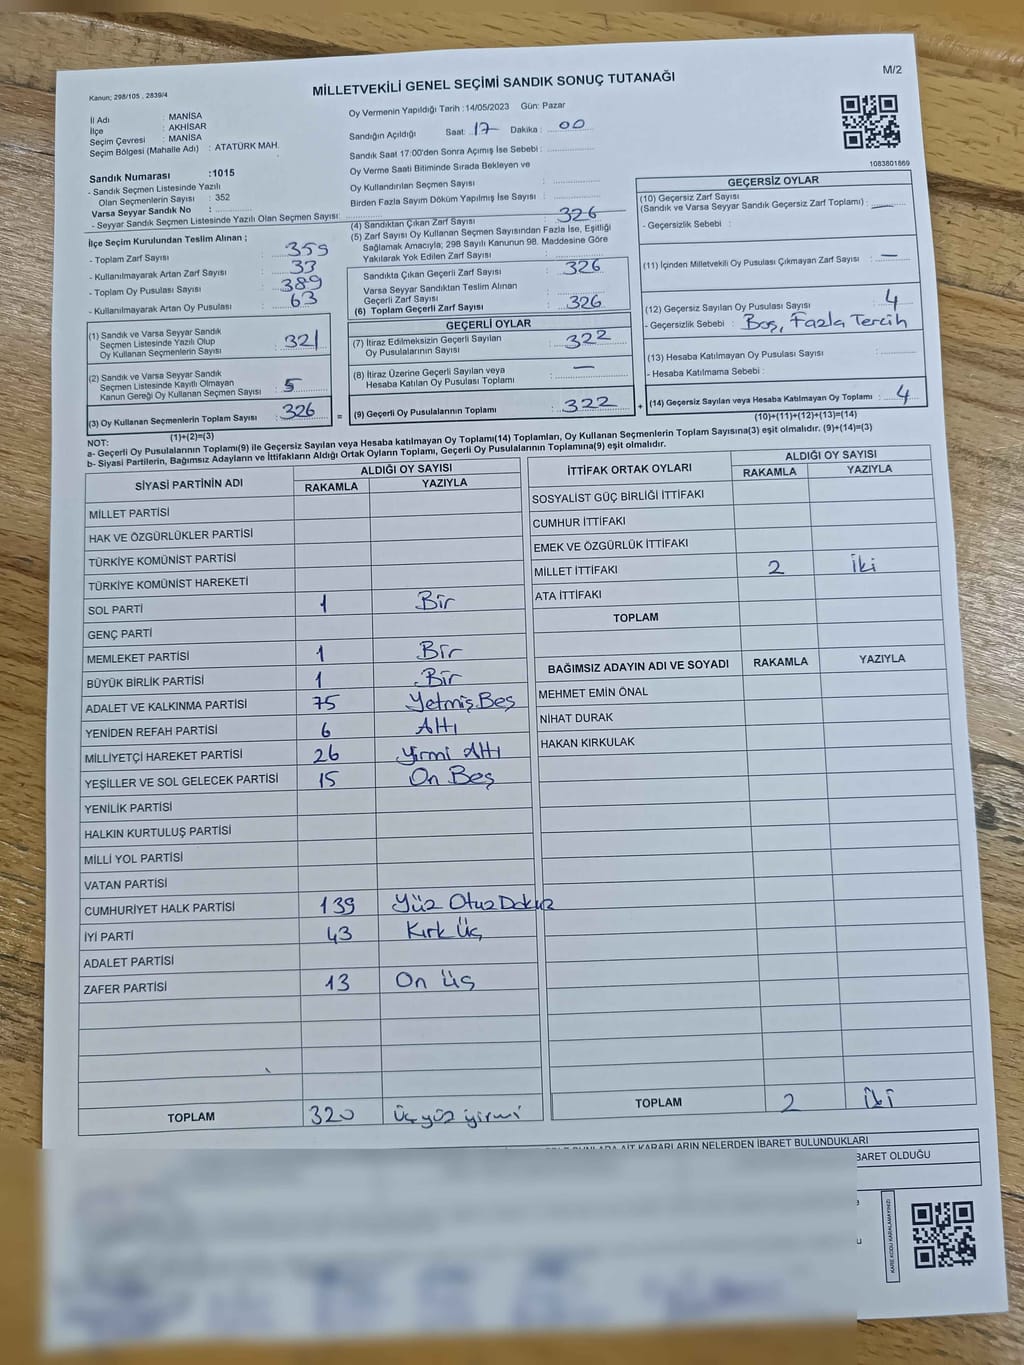 M/2
Kanun; 298/105 , 2839/4
MİLLETVEKİLİ GENEL SEÇİMİ SANDIK SONUÇ TUTANAĞI
İl Adı : MANİSA
İlçe : AKHİSAR
Seçim Çevresi : MANİSA
Seçim Bölgesi (Mahalle Adı) : ATATÜRK MAH.
Sandık Numarası :1015
- Sandık Seçmen Listesinde Yazılı
Olan Seçmenlerin Sayısı : 352
Varsa Seyyar Sandık No :
- Seyyar Sandık Seçmen Listesinde Yazılı Olan Seçmen Sayısı:
İlçe Seçim Kurulundan Teslim Alınan ;
- Toplam Zarf Sayısı : 359
- Kullanılmayarak Artan Zarf Sayısı : 33
- Toplam Oy Pusulası Sayısı : 389
- Kullanılmayarak Artan Oy Pusulası : 63
(1) Sandık ve Varsa Seyyar Sandık
Seçmen Listesinde Yazılı Olup
Oy Kullanan Seçmenlerin Sayısı : 321
(2) Sandık ve Varsa Seyyar Sandık
Seçmen Listesinde Kayıtlı Olmayan
Kanun Gereği Oy Kullanan Seçmen Sayısı : 5
(3) Oy Kullanan Seçmenlerin Toplam Sayısı : 326 =
(1)+(2)=(3)
Oy Vermenin Yapıldığı Tarih :14/05/2023 Gün: Pazar
Sandığın Açıldığı Saat: 17 Dakika : 00
Sandık Saat 17:00'den Sonra Açımış İse Sebebi :
Oy Verme Saati Bitiminde Sırada Bekleyen ve
Oy Kullandırılan Seçmen Sayısı :
Birden Fazla Sayım Döküm Yapılmış İse Sayısı :
(4) Sandıktan Çıkan Zarf Sayısı : 326
(5) Zarf Sayısı Oy Kullanan Seçmen Sayısından Fazla İse, Eşitliği
Sağlamak Amacıyla; 298 Sayılı Kanunun 98. Maddesine Göre
Yakılarak Yok Edilen Zarf Sayısı :
Sandıkta Çıkan Geçerli Zarf Sayısı : 326
Varsa Seyyar Sandıktan Teslim Alınan
Geçerli Zarf Sayısı :
(6) Toplam Geçerli Zarf Sayısı : 326
GEÇERLİ OYLAR
(7) İtiraz Edilmeksizin Geçerli Sayılan
Oy Pusulalarının Sayısı : 322
(8) İtiraz Üzerine Geçerli Sayılan veya
Hesaba Katılan Oy Pusulası Toplamı : —
(9) Geçerli Oy Pusulalarının Toplamı : 322 +
1083801869
GEÇERSİZ OYLAR
(10) Geçersiz Zarf Sayısı
(Sandık ve Varsa Seyyar Sandık Geçersiz Zarf Toplamı) : —
- Geçersizlik Sebebi :
(11) İçinden Milletvekili Oy Pusulası Çıkmayan Zarf Sayısı : —
(12) Geçersiz Sayılan Oy Pusulası Sayısı : 4
- Geçersizlik Sebebi : Boş, Fazla Tercih
(13) Hesaba Katılmayan Oy Pusulası Sayısı :
- Hesaba Katılmama Sebebi :
(14) Geçersiz Sayılan veya Hesaba Katılmayan Oy Toplamı : 4
(10)+(11)+(12)+(13)=(14)
NOT:
a- Geçerli Oy Pusulalarının Toplamı(9) ile Geçersiz Sayılan veya Hesaba katılmayan Oy Toplamı(14) Toplamları, Oy Kullanan Seçmenlerin Toplam Sayısına(3) eşit olmalıdır. (9)+(14)=(3)
b- Siyasi Partilerin, Bağımsız Adayların ve İttifakların Aldığı Ortak Oyların Toplamı, Geçerli Oy Pusulalarının Toplamına(9) eşit olmalıdır.
SİYASİ PARTİNİN ADI ALDIĞI OY SAYISI
RAKAMLA YAZIYLA
MİLLET PARTİSİ
HAK VE ÖZGÜRLÜKLER PARTİSİ
TÜRKİYE KOMÜNİST PARTİSİ
TÜRKİYE KOMÜNİST HAREKETİ
SOL PARTİ 1 Bir
GENÇ PARTİ
MEMLEKET PARTİSİ 1 Bir
BÜYÜK BİRLİK PARTİSİ 1 Bir
ADALET VE KALKINMA PARTİSİ 75 Yetmiş Beş
YENİDEN REFAH PARTİSİ 6 Altı
MİLLİYETÇİ HAREKET PARTİSİ 26 Yirmi Altı
YEŞİLLER VE SOL GELECEK PARTİSİ 15 On Beş
YENİLİK PARTİSİ
HALKIN KURTULUŞ PARTİSİ
MİLLİ YOL PARTİSİ
VATAN PARTİSİ
CUMHURİYET HALK PARTİSİ 139 Yüz Otuz Dokuz
İYİ PARTİ 43 Kırk Üç
ADALET PARTİSİ
ZAFER PARTİSİ 13 On üç
TOPLAM 320 üçyüz yirmi
İTTİFAK ORTAK OYLARI ALDIĞI OY SAYISI
RAKAMLA YAZIYLA
SOSYALİST GÜÇ BİRLİĞİ İTTİFAKI
CUMHUR İTTİFAKI
EMEK VE ÖZGÜRLÜK İTTİFAKI
MİLLET İTTİFAKI 2 İki
ATA İTTİFAKI
TOPLAM
BAĞIMSIZ ADAYIN ADI VE SOYADI RAKAMLA YAZIYLA
MEHMET EMİN ÖNAL
NİHAT DURAK
HAKAN KIRKULAK
TOPLAM 2 İki
AİT KARARLARIN NELERDEN İBARET BULUNDUKLARI
BARET OLDUĞU
KARE KODU KARALAMAYINIZ!